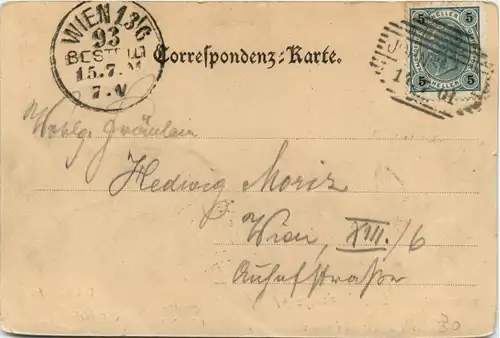 WIEN 13/6
93
BESTELLT
15.7.
7.V
Correspondenz-Karte.
5 HELLER 5
5 HELLER 5
Wohlg. Fräulein
Hedwig Moriz
Wien, XIII./6
Auhofstraße
30